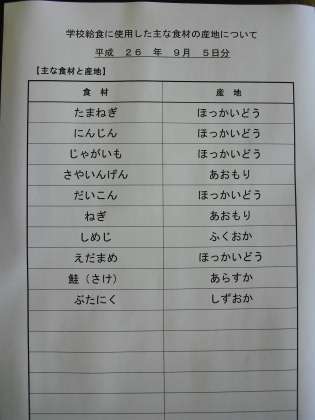 学校給食に使用した主な食材の産地について
平成 26 年 9月 5日分
【主な食材と産地】
食 材 産 地
たまねぎ ほっかいどう
にんじん ほっかいどう
じゃがいも ほっかいどう
さやいんげん あおもり
だいこん ほっかいどう
ねぎ あおもり
しめじ ふくおか
えだまめ ほっかいどう
鮭（さけ） あらすか
ぶたにく しずおか